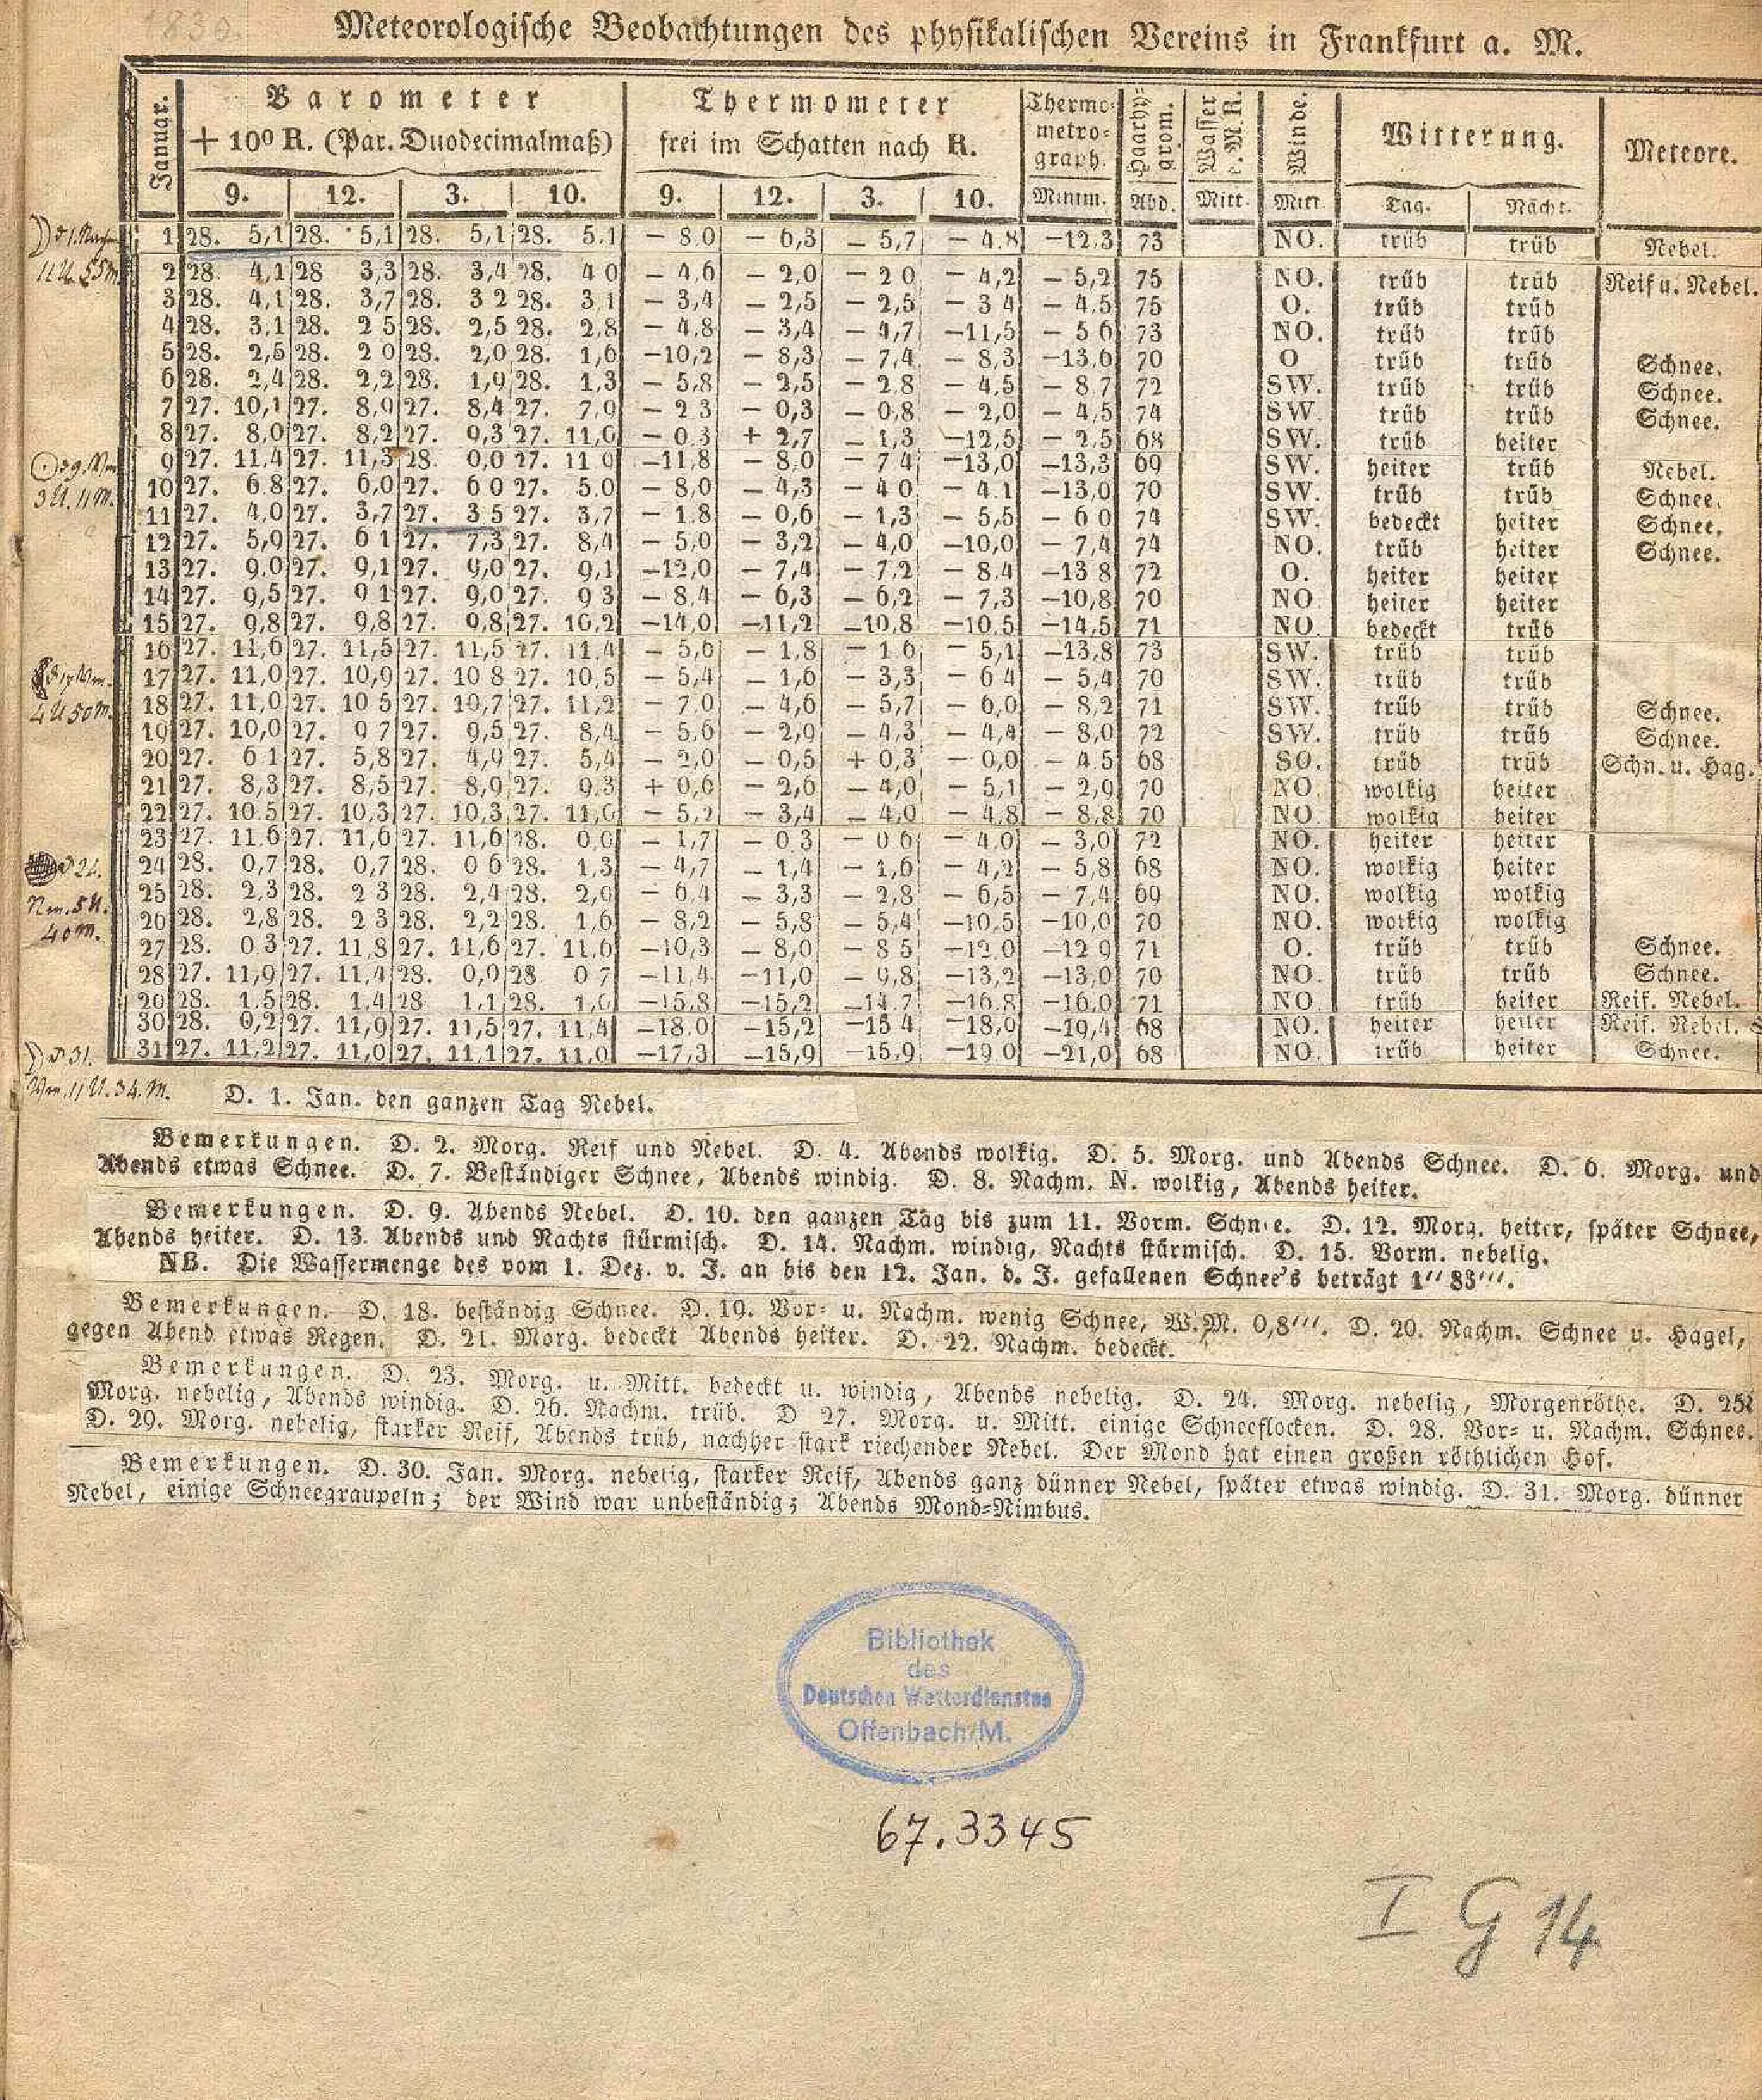 1830.
Meteorologische Beobachtungen des physikalischen Vereins in Frankfurt a. M.
Januar. | Barometer | Thermometer | Thermo- | Haarhy- | Wasser | Winde. | Witterung. | Meteore.
+ 10⁰ R. (Par. Duodecimalmaß) | frei im Schatten nach R. | metro- graph. | grom.
9. | 12. | 3. | 10. | 9. | 12. | 3. | 10. | Minim. | Abd. | Mitt. | Mitt. | Tag. | Nacht.
1 | 28. 5,1 | 28. 5,1 | 28. 5,1 | 28. 5.1 | − 8,0 | − 6,3 | − 5,7 | − 4,8 | −12,3 | 73 | NO. | trüb | trüb | Nebel.
2 | 28. 4,1 | 28 3,3 | 28. 3,4 | 28. 4 0 | − 4,6 | − 2,0 | − 2 0 | − 4,2 | − 5,2 | 75 | NO. | trüb | trüb | Reif u. Nebel.
3 | 28. 4,1 | 28. 3,7 | 28. 3 2 | 28. 3,1 | − 3,4 | − 2,5 | − 2,5 | − 3 4 | − 4,5 | 75 | O. | trüb | trüb
4 | 28. 3,1 | 28. 2 5 | 28. 2,5 | 28. 2,8 | − 4,8 | − 3,4 | − 4,7 | −11,5 | − 5 6 | 73 | NO. | trüb | trüb
5 | 28. 2,5 | 28. 2 0 | 28. 2,0 | 28. 1,6 | −10,2 | − 8,3 | − 7,4 | − 8,3 | −13,6 | 70 | O | trüb | trüb | Schnee.
6 | 28. 2,4 | 28. 2,2 | 28. 1,9 | 28. 1,3 | − 5,8 | − 2,5 | − 2 8 | − 4,5 | − 8,7 | 72 | SW. | trüb | trüb | Schnee.
7 | 27. 10,1 | 27. 8,9 | 27. 8,4 | 27. 7,9 | − 2 3 | − 0,3 | − 0,8 | − 2,0 | − 4,5 | 74 | SW. | trüb | trüb | Schnee.
8 | 27. 8,0 | 27. 8,2 | 27. 9,3 | 27. 11,0 | − 0,3 | + 2,7 | − 1,3 | −12,5 | − 2,5 | 68 | SW. | trüb | heiter
9 | 27. 11,4 | 27. 11,3 | 28. 0,0 | 27. 11 9 | −11,8 | − 8,0 | − 7 4 | −13,0 | −13,3 | 69 | SW. | heiter | trüb | Nebel.
10 | 27. 6.8 | 27. 6,0 | 27. 6 0 | 27. 5,0 | − 8,0 | − 4,3 | − 4 0 | − 4.1 | −13,0 | 70 | SW. | trüb | trüb | Schnee.
11 | 27. 4,0 | 27. 3,7 | 27. 3 5 | 27. 3,7 | − 1,8 | − 0,6 | − 1,3 | − 5,5 | − 6 0 | 74 | SW. | bedeckt | heiter | Schnee.
12 | 27. 5,9 | 27. 6 1 | 27. 7,3 | 27. 8,4 | − 5,0 | − 3,2 | − 4,0 | −10,0 | − 7,4 | 74 | NO. | trüb | heiter | Schnee.
13 | 27. 9,0 | 27. 9,1 | 27. 9,0 | 27. 9,1 | −12,0 | − 7,4 | − 7,2 | − 8,4 | −13 8 | 72 | O. | heiter | heiter
14 | 27. 9,5 | 27. 9 1 | 27. 9,0 | 27. 9 3 | − 8,4 | − 6,3 | − 6,2 | − 7,3 | −10,8 | 70 | NO | heiter | heiter
15 | 27. 9,8 | 27. 9,8 | 27. 9,8 | 27. 10,2 | −14,0 | −11,2 | −10,8 | −10,5 | −14,5 | 71 | NO. | bedeckt | trüb
16 | 27. 11,6 | 27. 11,5 | 27. 11,5 | 27. 11,4 | − 5,6 | − 1,8 | − 1 6 | − 5,1 | −13,8 | 73 | SW. | trüb | trüb
17 | 27. 11,0 | 27. 10,9 | 27. 10 8 | 27. 10,5 | − 5,4 | − 1,6 | − 3,3 | − 6 4 | − 5,4 | 70 | SW. | trüb | trüb
18 | 27. 11,0 | 27. 10 5 | 27. 10,7 | 27. 11,2 | − 7,0 | − 4,6 | − 5,7 | − 6,0 | − 8,2 | 71 | SW. | trüb | trüb | Schnee.
19 | 27. 10,0 | 27. 9 7 | 27. 9,5 | 27. 8,4 | − 5,6 | − 2,9 | − 4,3 | − 4,4 | − 8,0 | 72 | SW. | trüb | trüb | Schnee.
20 | 27. 6 1 | 27. 5,8 | 27. 4,9 | 27. 5,4 | − 2,0 | − 0,5 | + 0,3 | − 0,0 | − 4 5 | 68 | SO. | trüb | trüb | Schn. u. Hag.
21 | 27. 8,3 | 27. 8,5 | 27. 8,9 | 27. 9,3 | + 0,6 | − 2,6 | − 4,0 | − 5,1 | − 2,9 | 70 | NO. | wolkig | heiter
22 | 27. 10.5 | 27. 10,3 | 27. 10,3 | 27. 11,0 | − 5,2 | − 3,4 | − 4,0 | − 4,8 | − 8,8 | 70 | NO. | wolkig | heiter
23 | 27. 11.6 | 27. 11,6 | 27. 11,6 | 28. 0,0 | − 1,7 | − 0 3 | − 0 6 | − 4,0 | − 3,0 | 72 | NO. | heiter | heiter
24 | 28. 0,7 | 28. 0,7 | 28. 0 6 | 28. 1,3 | − 4,7 | − 1,4 | − 1,6 | − 4,2 | − 5,8 | 68 | NO. | wolkig | heiter
25 | 28. 2,3 | 28. 2 3 | 28. 2,4 | 28. 2,6 | − 6,4 | − 3,3 | − 2,8 | − 6,5 | − 7,4 | 69 | NO. | wolkig | wolkig
26 | 28. 2,8 | 28. 2 3 | 28. 2,2 | 28. 1,6 | − 8,2 | − 5,8 | − 5,4 | −10,5 | −10,0 | 70 | NO. | wolkig | wolkig
27 | 28. 0 3 | 27. 11,8 | 27. 11,6 | 27. 11,6 | −10,3 | − 8,0 | − 8 5 | −12,0 | −12 9 | 71 | O. | trüb | trüb | Schnee.
28 | 27. 11,9 | 27. 11,4 | 28. 0,0 | 28 0 7 | −11,4 | −11,0 | − 9,8 | −13,2 | −13,0 | 70 | NO. | trüb | trüb | Schnee.
29 | 28. 1.5 | 28. 1,4 | 28 1,1 | 28. 1,0 | −15,8 | −15,2 | −14,7 | −16,8 | −16,0 | 71 | NO. | trüb | heiter | Reif. Nebel.
30 | 28. 0,2 | 27. 11,9 | 27. 11,5 | 27. 11,4 | −18,0 | −15,2 | −15 4 | −18,0 | −19,4 | 68 | NO. | heiter | heiter | Reif. Nebel.
31 | 27. 11,2 | 27. 11,0 | 27. 11,1 | 27. 11,0 | −17,3 | −15,9 | −15,9 | −19 0 | −21,0 | 68 | NO. | trüb | heiter | Schnee.
11 U. 55 m.
3 U. 11 m.
4 U 50 m.
24.
Nm. 5 U.
40 m.
31.
Vm. 11 U. 34. M.
D. 1. Jan. den ganzen Tag Nebel.
Bemerkungen. D. 2. Morg. Reif und Nebel. D. 4. Abends wolkig. D. 5. Morg. und Abends Schnee. D. 6. Morg. und
Abends etwas Schnee. D. 7. Beständiger Schnee, Abends windig. D. 8. Nachm. N. wolkig, Abends heiter.
Bemerkungen. D. 9. Abends Nebel. D. 10. den ganzen Tag bis zum 11. Vorm. Schnee. D. 12. Morg. heiter, später Schnee,
Abends heiter. D. 13. Abends und Nachts stürmisch. D. 14. Nachm. windig, Nachts stürmisch. D. 15. Vorm. nebelig.
NB. Die Wassermenge des vom 1. Dez. v. J. an bis den 12. Jan. d. J. gefallenen Schnee's beträgt 1'' 83'''.
Bemerkungen. D. 18. beständig Schnee. D. 19. Vor- u. Nachm. wenig Schnee, W. M. 0,8'''. D. 20. Nachm. Schnee u. Hagel,
gegen Abend etwas Regen. D. 21. Morg. bedeckt Abends heiter. D. 22. Nachm. bedeckt.
Bemerkungen. D. 23. Morg. u. Mitt. bedeckt u. windig, Abends nebelig. D. 24. Morg. nebelig, Morgenröthe. D. 25
Morg. nebelig, Abends windig. D. 26. Nachm. trüb. D 27. Morg. u. Mitt. einige Schneeflocken. D. 28. Vor- u. Nachm. Schnee.
D. 29. Morg. nebelig, starker Reif, Abends trüb, nachher stark riechender Nebel. Der Mond hat einen großen röthlichen Hof.
Bemerkungen. D. 30. Jan. Morg. nebelig, starker Reif, Abends ganz dünner Nebel, später etwas windig. D. 31. Morg. dünner
Nebel, einige Schneegraupeln; der Wind war unbeständig; Abends Mond-Nimbus.
Bibliothek
des
Deutschen Wetterdienstes
Offenbach/M.
67.3345
I G 14